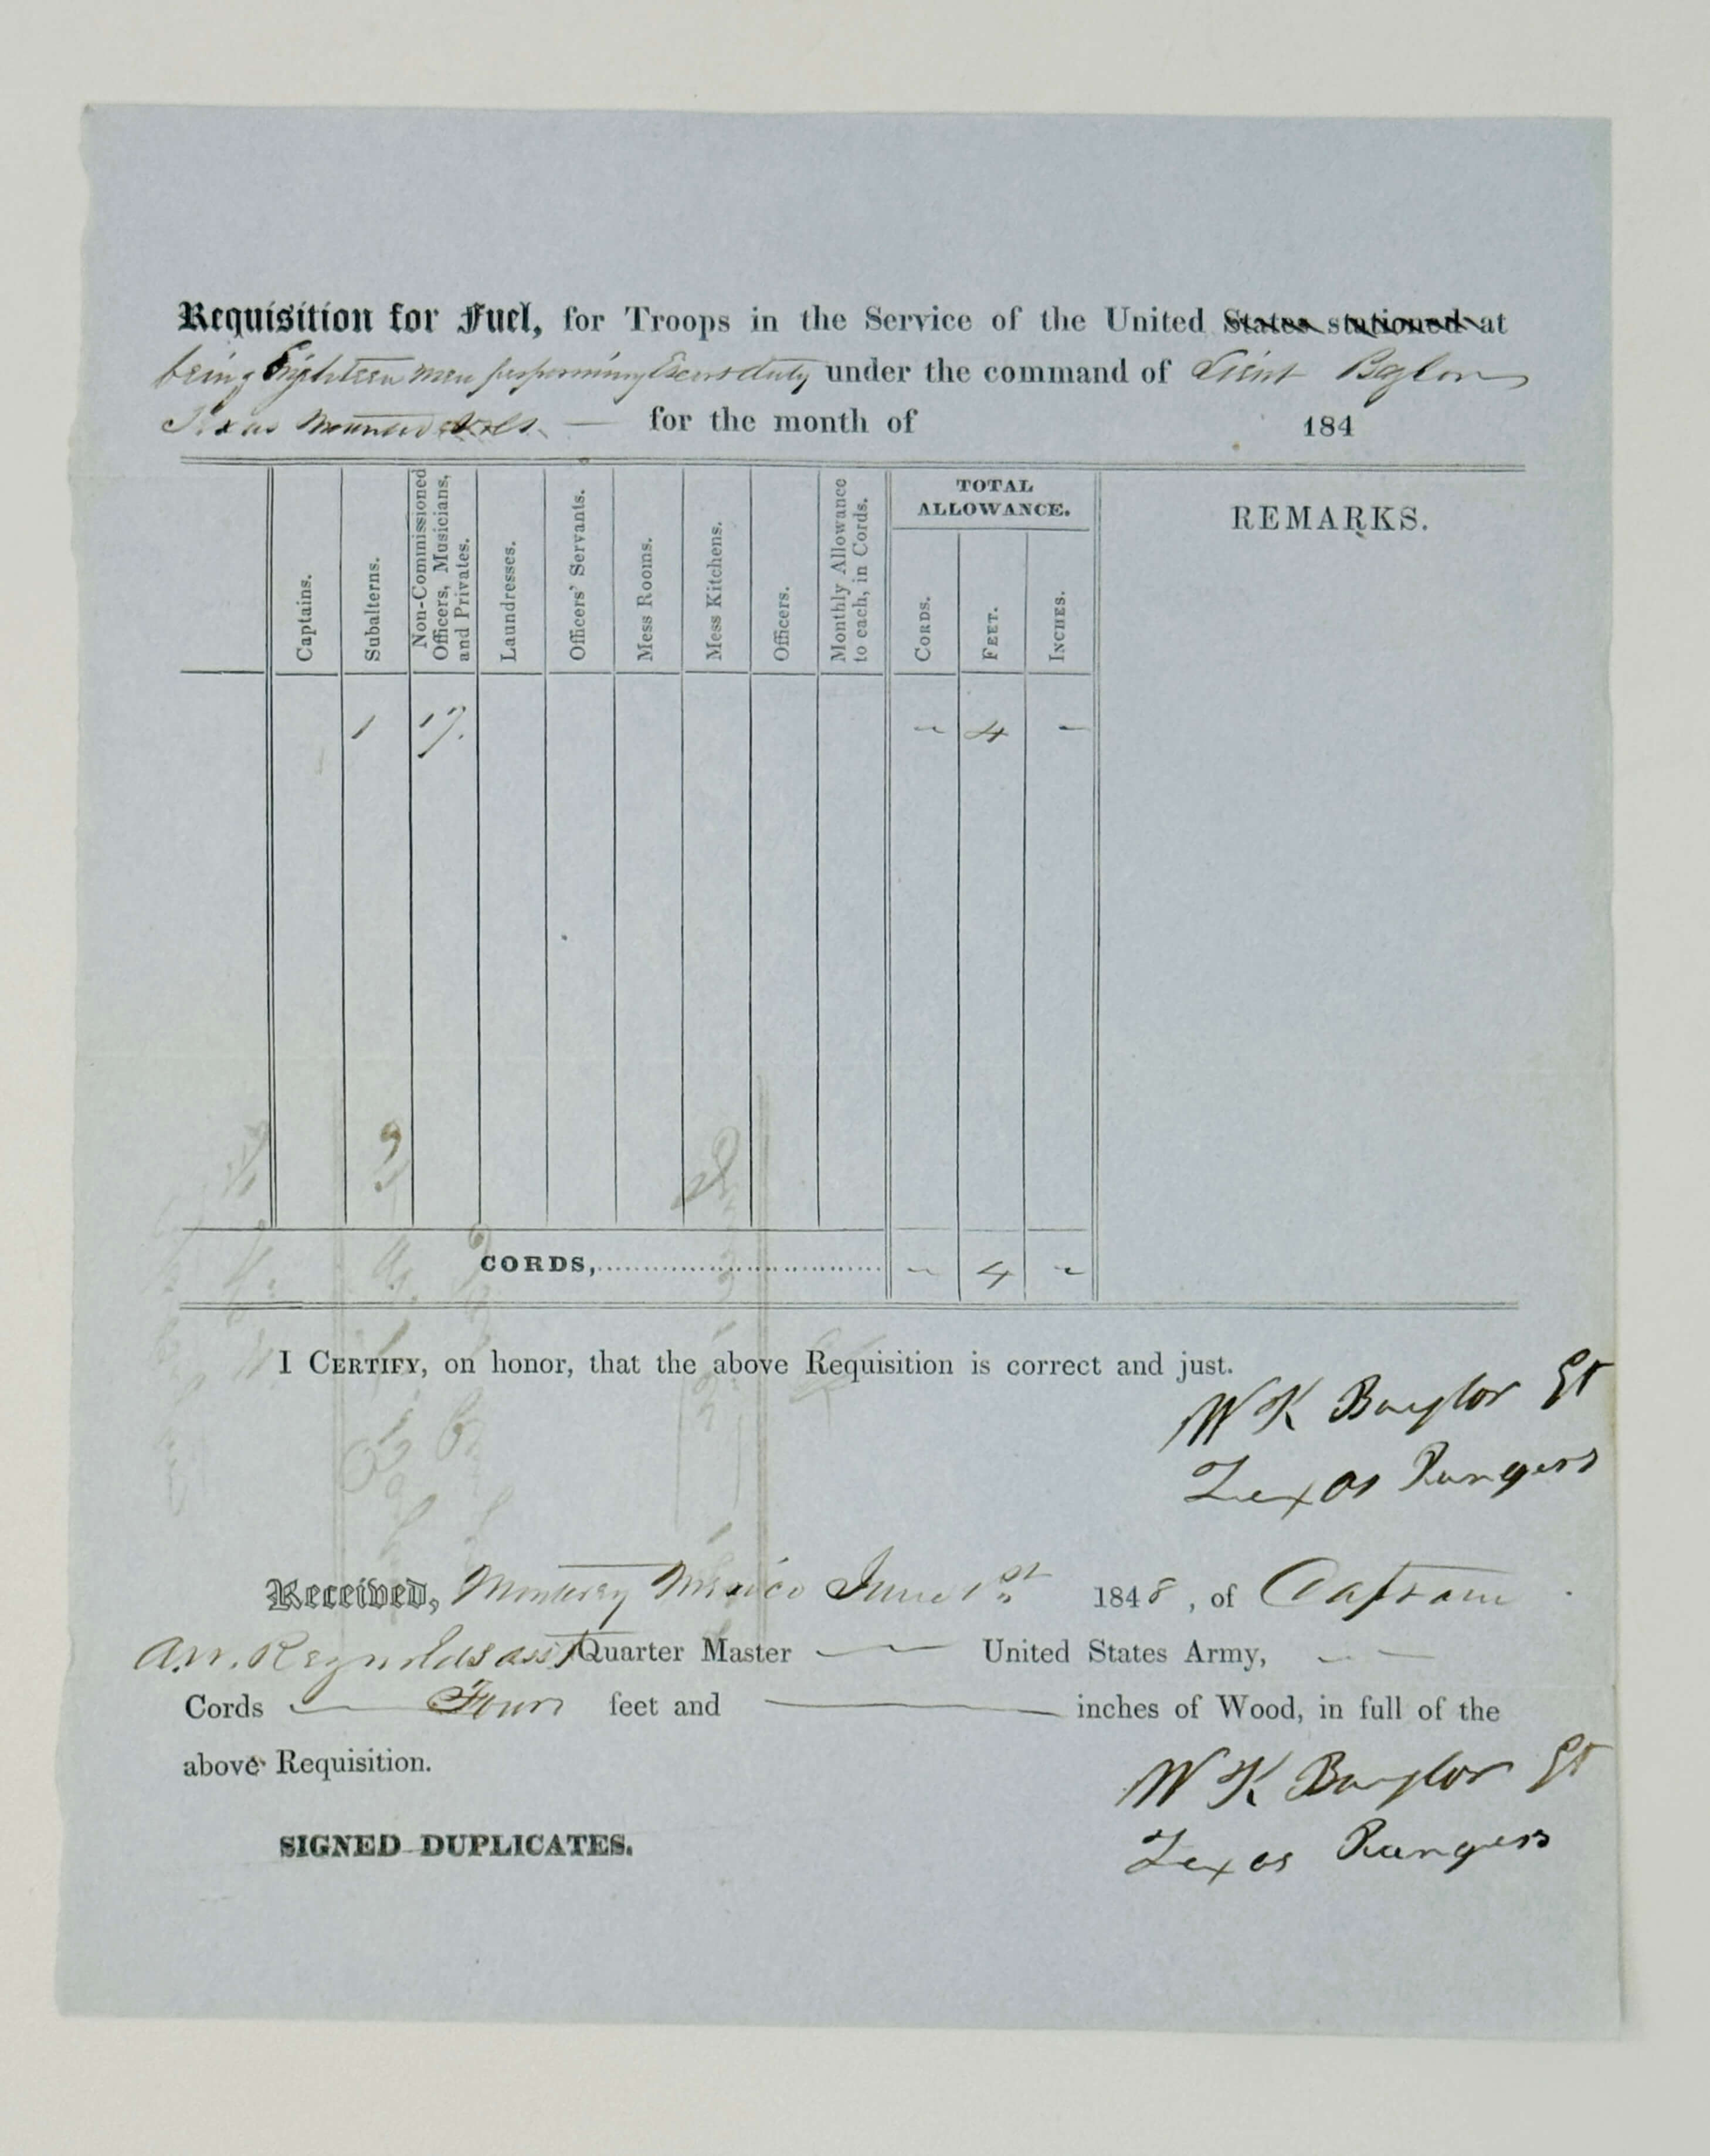 Requisition for Fuel, for Troops in the Service of the United States stationed at
being Eighteen men performing Escort duty under the command of Lieut Baylor
Texas Mounted Vols. — for the month of 184
Captains.
Subalterns.
Non-Commissioned Officers, Musicians, and Privates.
Laundresses.
Officers' Servants.
Mess Rooms.
Mess Kitchens.
Officers.
Monthly Allowance to each, in Cords.
TOTAL ALLOWANCE.
CORDS.
FEET.
INCHES.
REMARKS.
1 17. – 4 –
CORDS,.......... – 4 –
I CERTIFY, on honor, that the above Requisition is correct and just.
W K Baylor Lt
Texas Rangers
Received, Monterey Mexico June 1st 1848, of Captain
A.W. Reynolds asst Quarter Master — United States Army, — —
Cords — Four feet and — inches of Wood, in full of the
above Requisition.
W K Baylor Lt
Texas Rangers
SIGNED DUPLICATES.